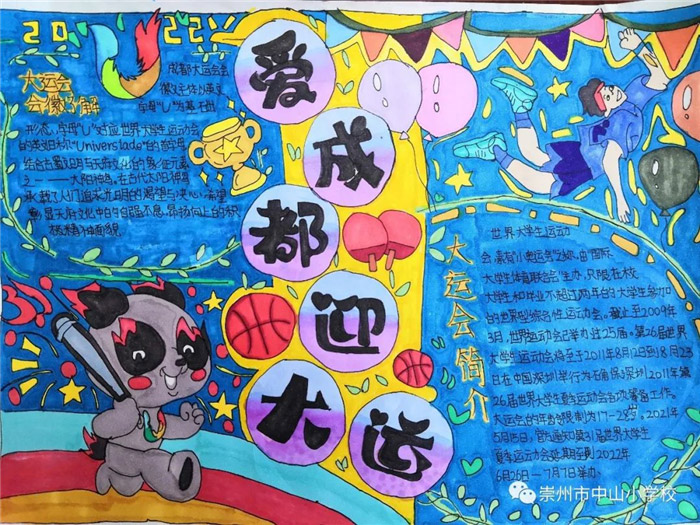 2022
大运会
会徽讲解
成都大运会会
徽以主体以英文
字母"U"为基石出
形态,字母"U"对应世界大学生运动会
的英文名称"Universiade"的首字母
结合古蜀文明与天府文化的象征元素
之一——太阳神鸟。在古代太阳神鸟
承载了人们追求光明的渴望与决心,希望
彰显天府文化中的自强不息、昂扬向上的积
极精神面貌
爱
成
都
迎
大
运
大运会简介
世界大学生运动
会,素有"小奥运会"之称,由国际
大学生体育联合会主办,只限在校
大学生和毕业不超过两年的大学生参加
的世界型综合性运动会。截止至2009年
3月,世界运动会已举办过25届。第26届世界
大学生运动会将至于2011年8月12日到18月23
日在中国深圳举行为石角保深圳2011年第
26届世界大学生夏季运动会各项筹备工作。
大运会的年龄限制为17-28岁。2021年
5月15日,官方通知第31届世界大学生
夏季运动会延期至到2022年
6月26日—7月7日举办.
崇州市中山小学校